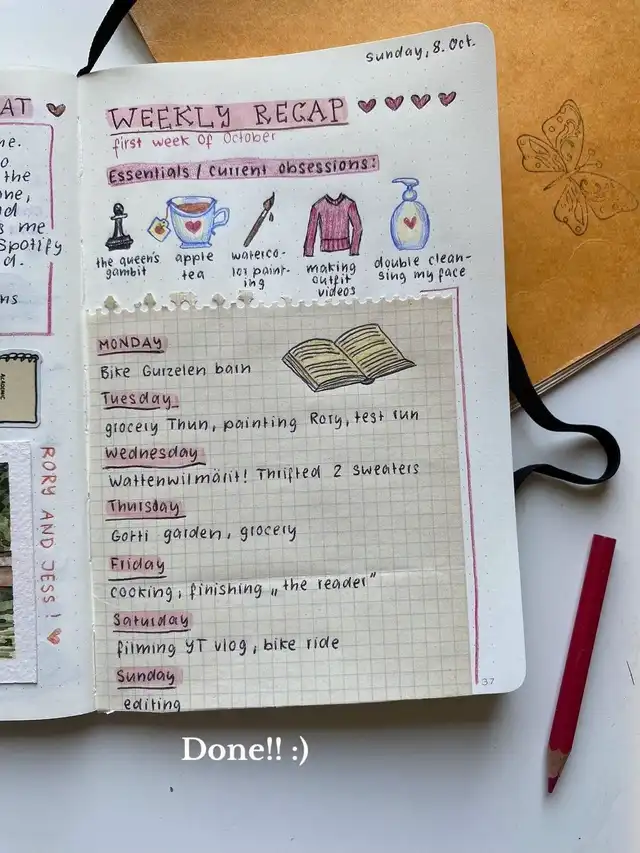 AT
me.
o
the
ne,
d
s me
Spotify
d.
ns
RORY AND JESS!
sunday, 8. Oct.
WEEKLY RECAP
first week of October
Essentials / current obsessions:
the queen's
gambit
apple
tea
waterco-
lor paint-
ing
making
outfit
videos
double clean-
sing my face
MONDAY
Bike Gurzelen bärn
Tuesday
grocery Thun, painting Rory, test run
Wednesday
Wattenwilmärit! Thrifted 2 sweaters
Thursday
Gotti garden, grocery
Friday
cooking, finishing „the reader"
Saturday
filming YT vlog, bike ride
Sunday
editing
37
Done!! :)